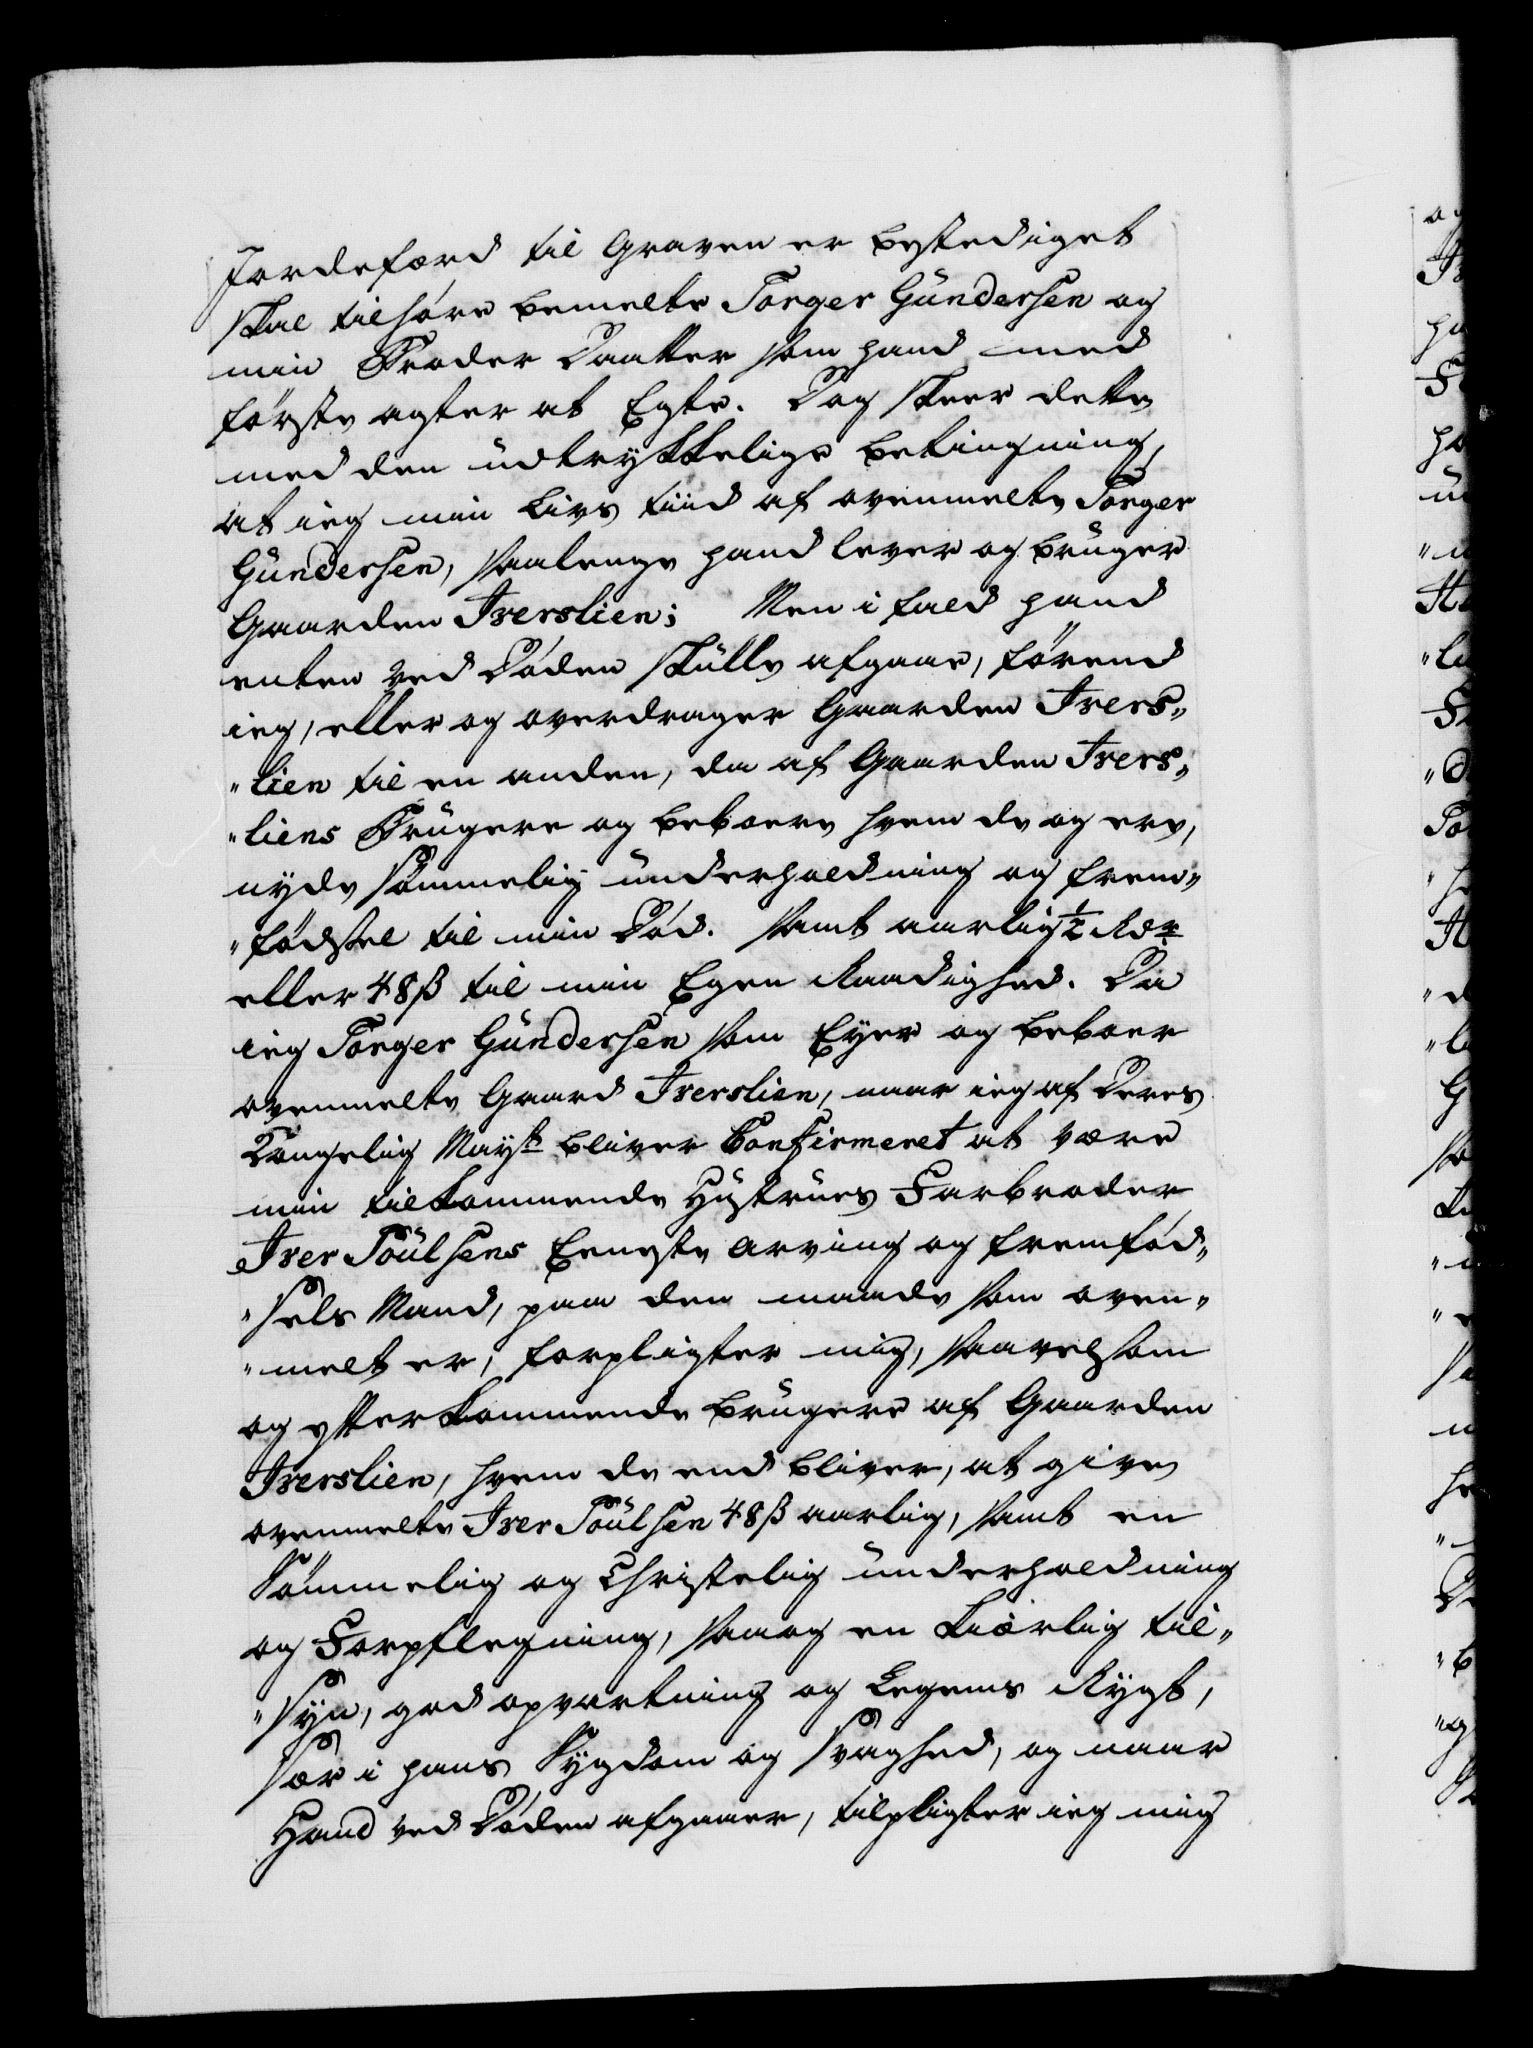 Jordeferd til Graven er bestediget
skal tilhøre bemelte Torger Gundersen og
min Broder Daatter som hand med
første agter at Egte. Dog skeer dette
med den udtrykkelige betingning,
at ieg min Livs tiid af ovenmelte Torger
Gundersen, saalenge hand lever og bruger
Gaarden Iverslien; Men i fald hand
enten ved Døden skulle afgaae, førend
ieg, eller og overdrager Gaarden Ivers„
„lien til en anden, da af Gaarden Ivers„
„liens Brugere og beboere hvem de og ere,
nyde sømmelig underholdning og frem„
„fødsel til min Død. samt aarlig ½ Rdr
eller 48 ß til min Egen Raadighed. Da
ieg Torger Gundersen som Eyer og beboer
ovenmelte Gaard Iverslien, naar ieg af Deres
Kongelig Mayst bliver Confirmeret at være
min tilkommende Hustrues Farbroder
Iver Poulsens Eeneste Arving og fremfød„
„sels Mand, paa den maade som oven„
„melt er, forpligter mig, saavelsom
og efterkommende brugere af Gaarden
Iverslien, hvem de end bliver, at give
ovenmelte Iver Poulsen 48 ß aarlig, samt en
Sømmelig og Christelig underholdning
og Forpflegning, saa og en kiærlig til„
„syn, god opvartning og Legems Rygt,
sær i hans Sygdom og svaghed, og naar
Hand ved Døden afgaaer, tilpligter ieg mig